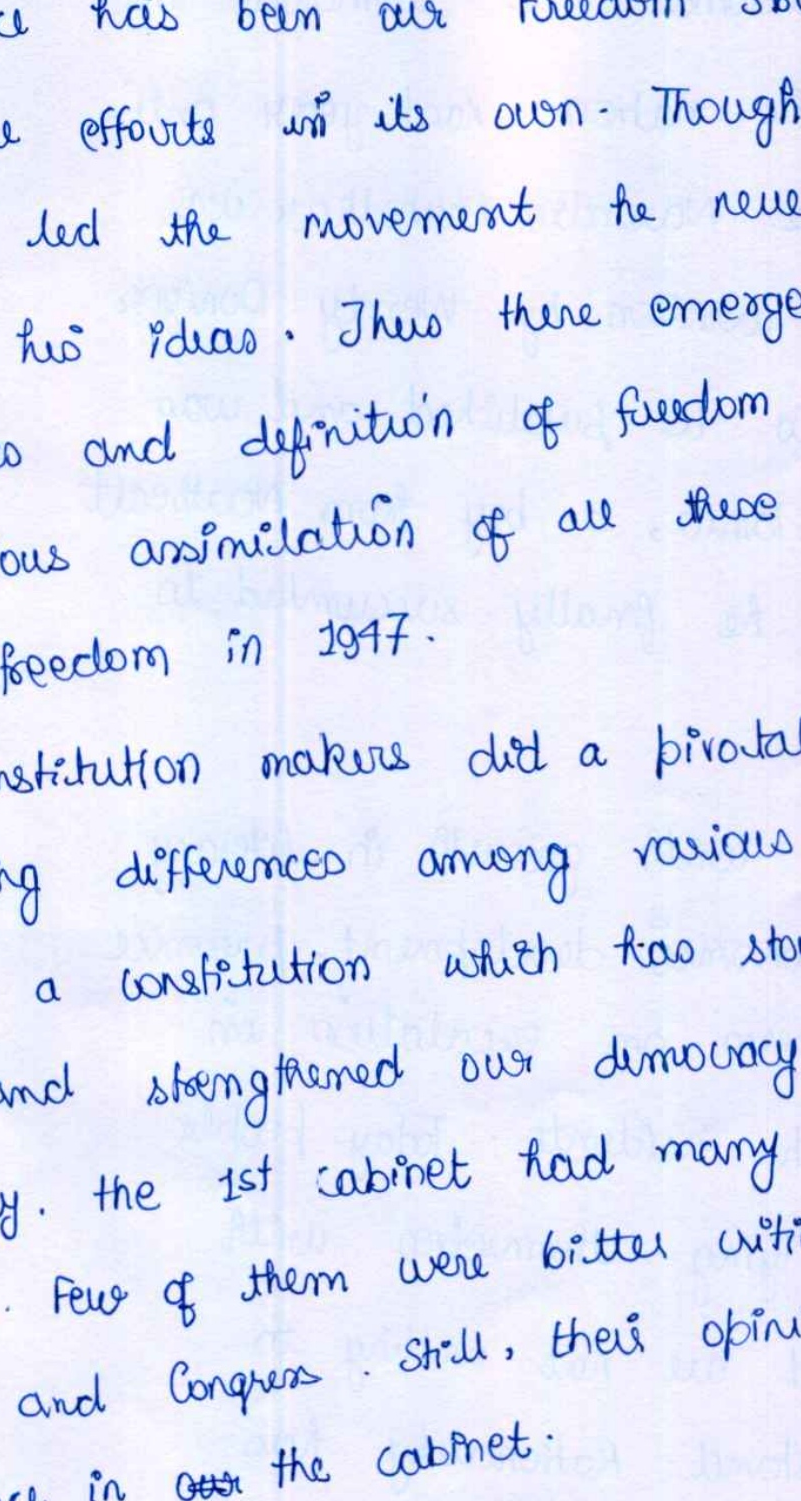 has been our freedom
efforts in its own Though
led the movement he neve
his ideas. Thus there emerge
and definition of freedom
ous assimilation of all these
freedom in 1947.
nstitution makers did a pivotal
ng differences among various
a constitution which has sto
and strengthened our democracy
y. the 1st cabinet had many
. Few of them were bitter criti
and Congress. Still, their opini
in the cabinet.